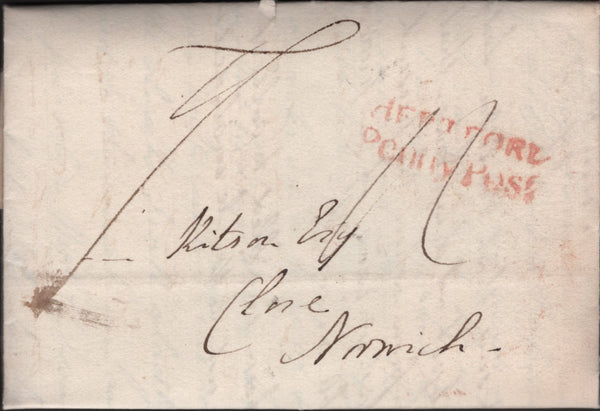 HERTFORD
Penny Post
— Kitson Esq
Close
Norwich -